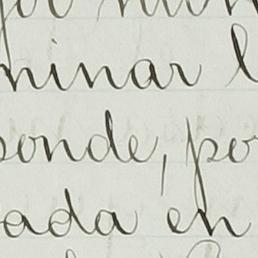 minar l
onde, po
ada en